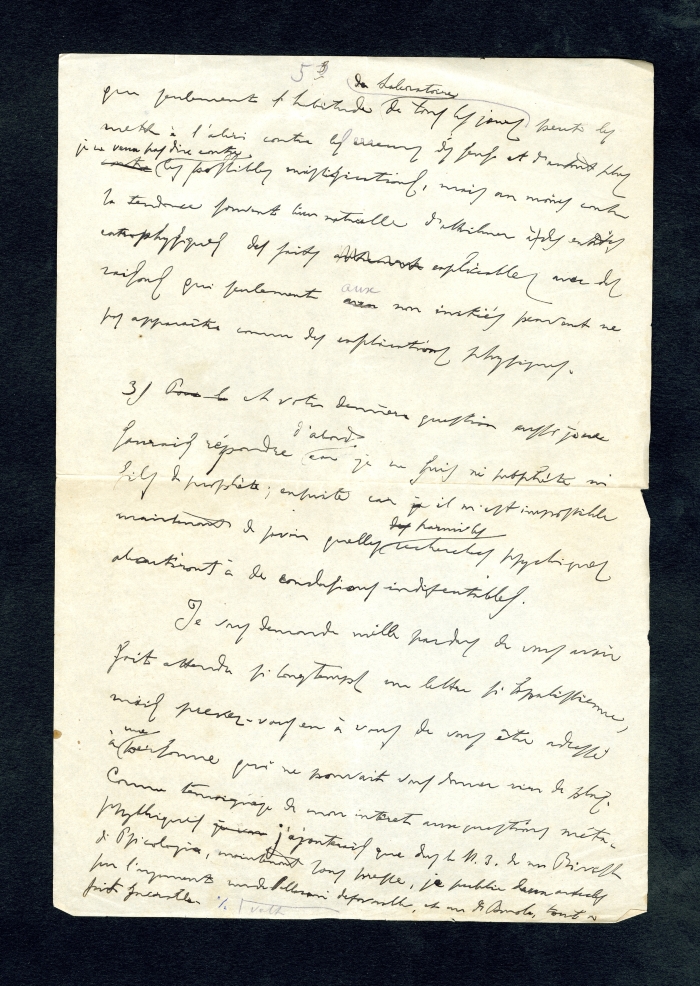 5
de laboratoire
que seulement l'habitude de tous les jours peut les
mettre à l'abri contre les erreurs des sens et d'autant plus
je ne veux pas dire contre
contre les possibles mystifications, mais au moins contre
la tendance souvent trop naturelle d'attribuer à des entités
métaphysiques des faits explicables avec des
raisons qui seulement aux non initiés peuvent ne
pas apparaître comme des explications physiques.
3) Pour la et votre dernière question aussi je ne
saurais répondre d'abord car je ne suis ni prophète ni
fils de prophète; ensuite car je il m'est impossible
maintenant de savoir quelles recherches psychiques
aboutiront à des conclusions indiscutables.
Je vous demande mille pardons de vous avoir
fait attendre si longtemps une lettre si
mais prenez-vous en à vous de vous être adressé
à une personne qui ne pouvait vous donner rien de plus.
Comme témoignage de mon intérêt aux questions méta-
psychiques j'ajouterais que dans le N. 3. de ma Rivista
di Psicologia, maintenant sous presse, je publie deux articles
sur l'argument un de et un de tout à
fait